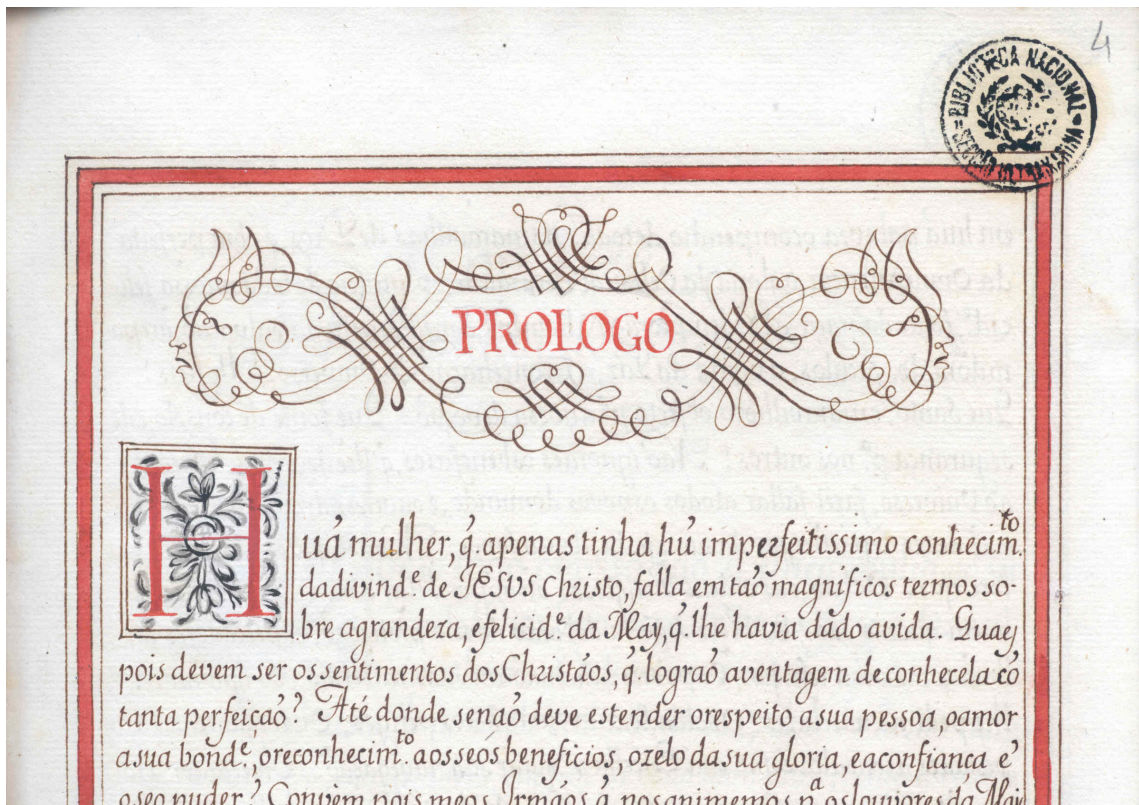 4
BIBLIOTECA NACIONAL
PROLOGO
Huã mulher, q̃. apenas tinha hũ imperfeitissimo conhecim.to
dadivind.e de JESUS Christo, falla em taõ magnificos termos so-
bre agrandeza, efelicid.e da May, q̃. lhe havia dado avida. Quaes
pois devem ser os sentimentos dos Christãos, q̃. lograõ aventagem deconhecela cõ
tanta perfeicaõ? Até donde senaõ deve estender orespeito asua pessoa, oamor
asua bond.e, oreconhecim.to aosseos beneficios, ozelo dasua gloria, eaconfiança ẽ
oseo puder? Convem pois meos Irmãos q̃. nosanimemos p.a oslouvores da May